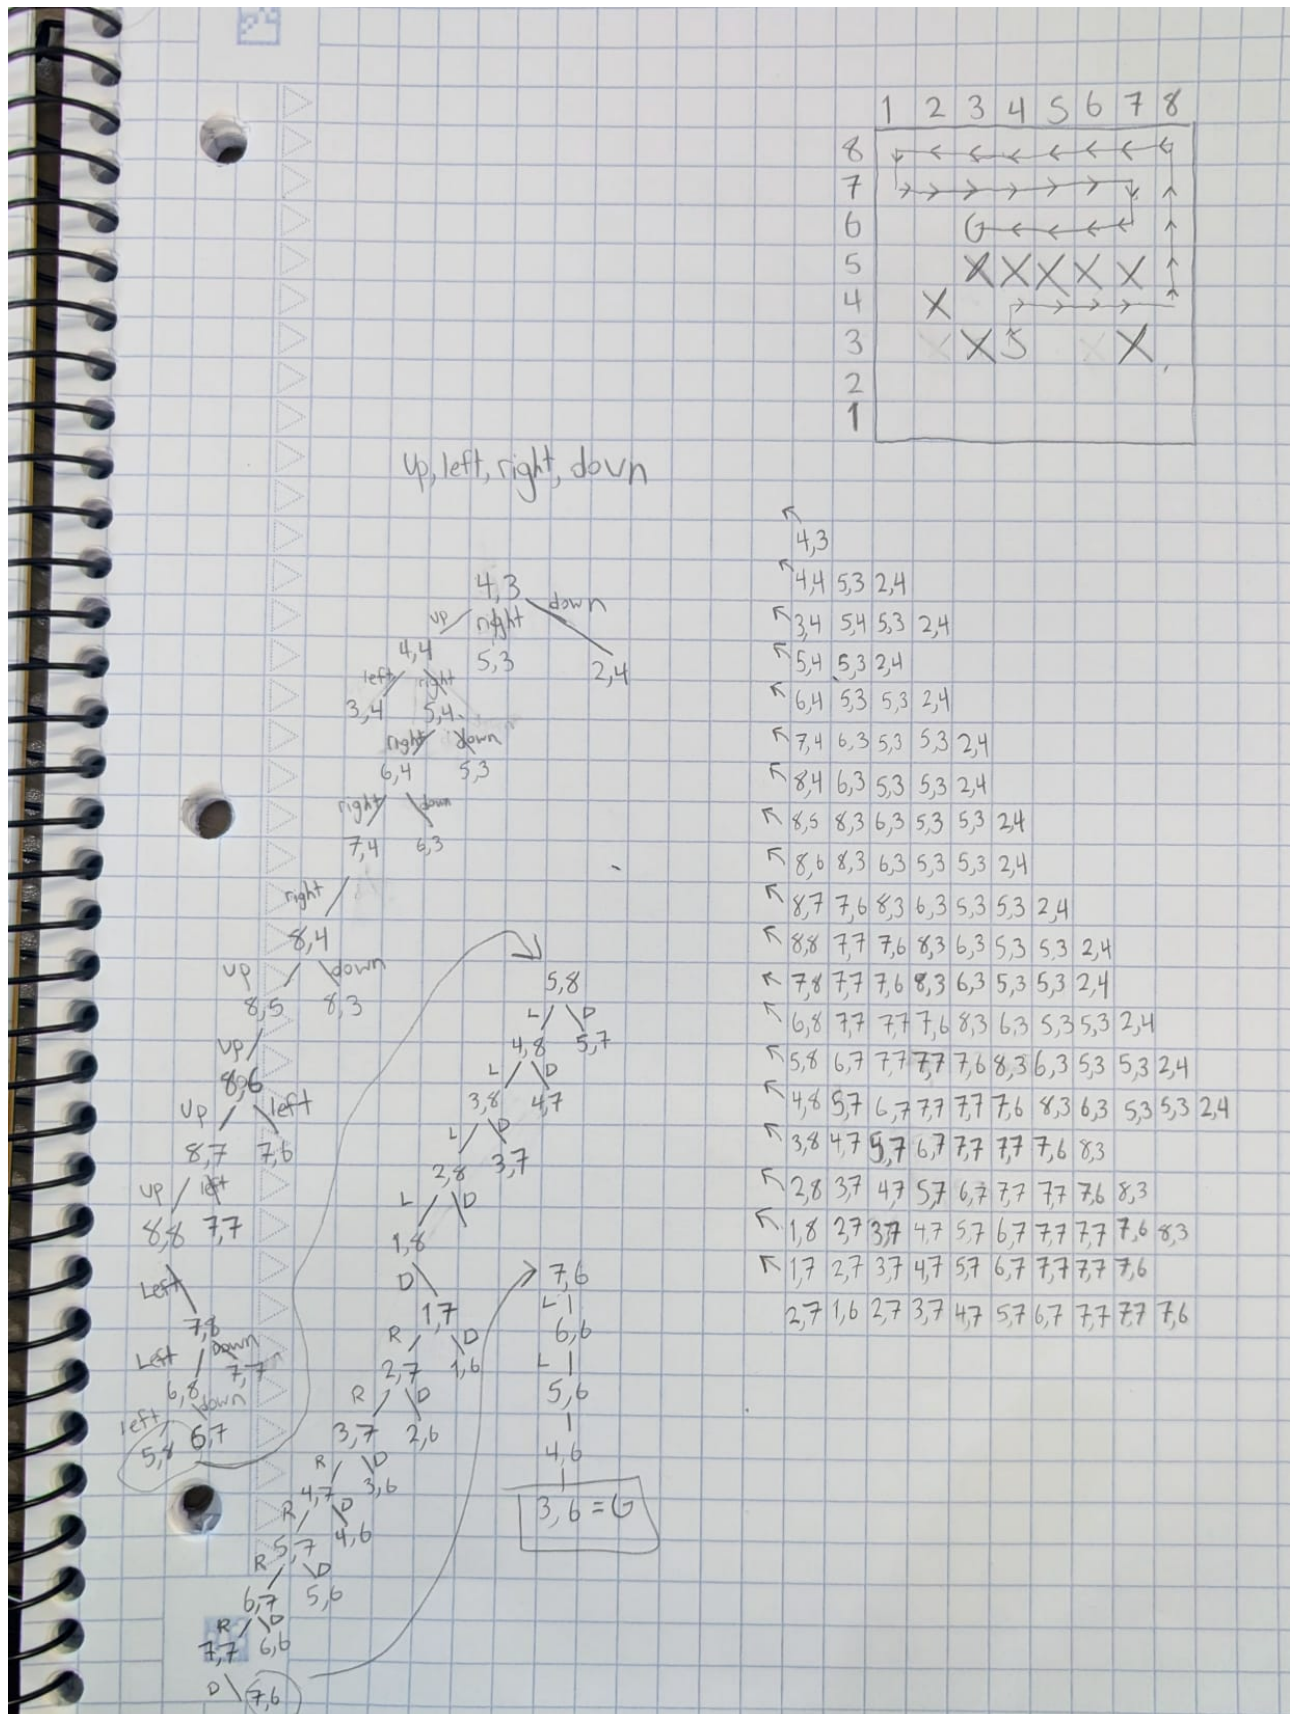 1 2 3 4 5 6 7 8
8
7
6 G
5 X X X X X
4 X
3 X X S X X
2
1
up, left, right, down
4,3
up right down
4,4 5,3 2,4
left right
3,4 5,4
right down
6,4 5,3
right down
7,4 6,3
right
8,4
up down
8,5 8,3
up
8,6
up left
8,7 7,6
up left
8,8 7,7
Left
7,8
Left Down
6,8 7,7
left down
5,8 6,7
5,8
L D
4,8 5,7
L D
3,8 4,7
L D
2,8 3,7
L D
1,8
D
1,7
R D
2,7 1,6
R D
3,7 2,6
R D
4,7 3,6
R D
5,7 4,6
R D
6,7 5,6
R D
7,7 6,6
D 7,6
7,6
L
6,6
L
5,6
4,6
3,6 = G
4,3
4,4 5,3 2,4
3,4 5,4 5,3 2,4
5,4 5,3 2,4
6,4 5,3 5,3 2,4
7,4 6,3 5,3 5,3 2,4
8,4 6,3 5,3 5,3 2,4
8,5 8,3 6,3 5,3 5,3 2,4
8,6 8,3 6,3 5,3 5,3 2,4
8,7 7,6 8,3 6,3 5,3 5,3 2,4
8,8 7,7 7,6 8,3 6,3 5,3 5,3 2,4
7,8 7,7 7,6 8,3 6,3 5,3 5,3 2,4
6,8 7,7 7,7 7,6 8,3 6,3 5,3 5,3 2,4
5,8 6,7 7,7 7,7 7,6 8,3 6,3 5,3 5,3 2,4
4,8 5,7 6,7 7,7 7,7 7,6 8,3 6,3 5,3 5,3 2,4
3,8 4,7 5,7 6,7 7,7 7,7 7,6 8,3
2,8 3,7 4,7 5,7 6,7 7,7 7,7 7,6 8,3
1,8 2,7 3,7 4,7 5,7 6,7 7,7 7,7 7,6 8,3
1,7 2,7 3,7 4,7 5,7 6,7 7,7 7,7 7,6
2,7 1,6 2,7 3,7 4,7 5,7 6,7 7,7 7,7 7,6